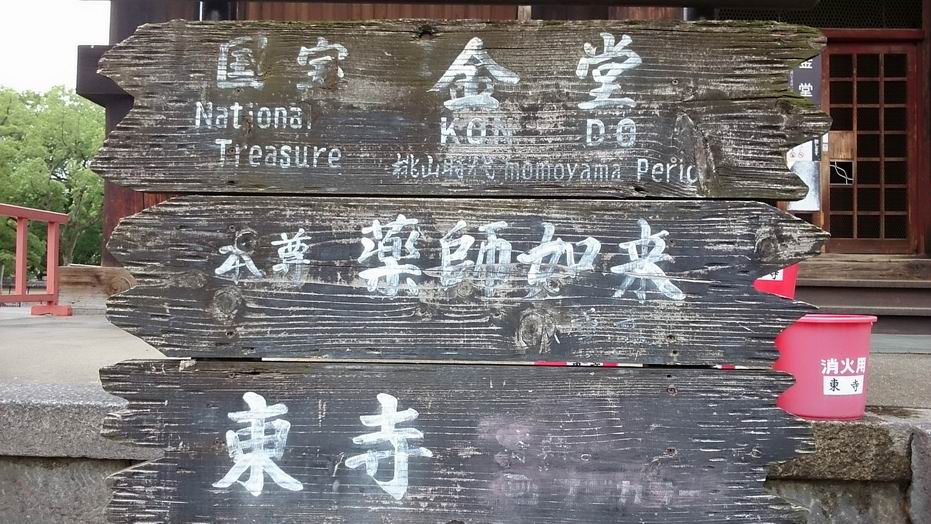 国宝 金堂
National KON DO
Treasure 桃山時代 momoyama Perio
本尊 薬師如来
東寺
消火用
東寺
堂